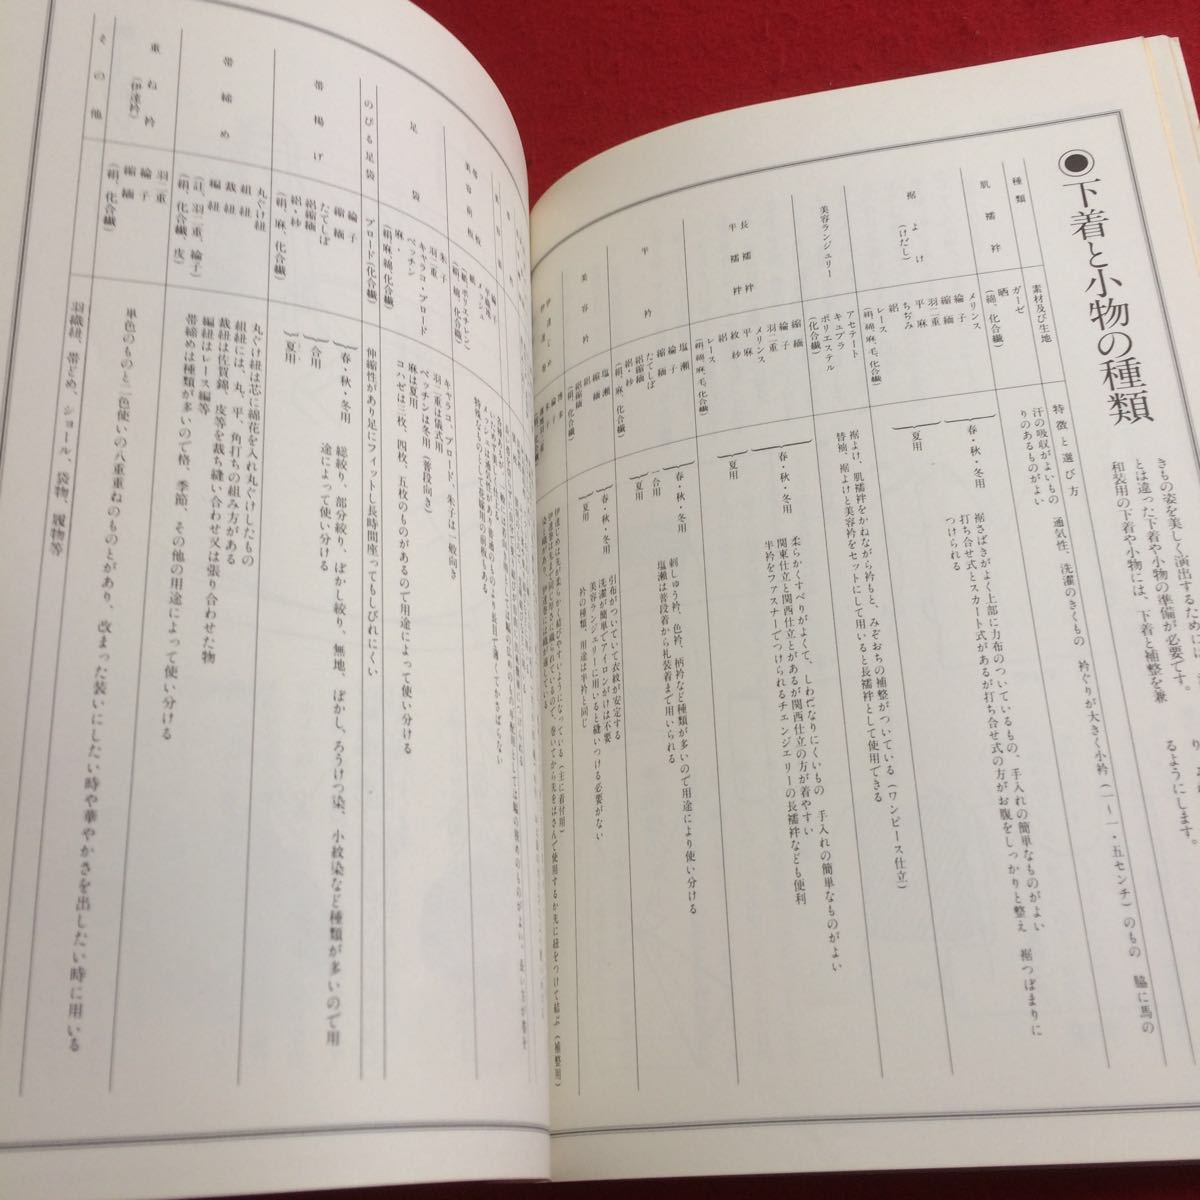 下着と小物の種類
きもの姿を美しく演出するためには
とは違った下着や小物の準備が必要です。
和装用の下着や小物には、下着と補整を兼
るようにします。
種類
素材及び生地
特徴と選び方
肌襦袢
ガーゼ
晒
(綿、化合繊)
汗の吸収がよいもの 通気性、洗濯のきくもの 衿ぐりが大きく小衿(一〜一・五センチ)のもの 脇に馬の
りのあるものがよい
裾よけ
(けだし)
メリンス
綸子
縮緬
羽二重
平麻
ちぢみ
絽
レース
(絹、綿、麻、毛、化合繊)
春・秋・冬用
夏用
裾さばきがよく上部に力布のついているもの、手入れの簡単なものがよい
打ち合せ式とスカート式があるが打ち合せ式の方がお腹をしっかりと整え 裾つぼまりに
つけられる
美容ランジェリー
アセテート
キュプラ
ポリエステル
(化合繊)
裾よけ、肌襦袢をかねながら衿もと、みぞおちの補整がついている(ワンピース仕立)
替袖、裾よけと美容衿をセットにして用いると長襦袢として使用できる
長襦袢
半襦袢
縮緬
綸子
羽二重
メリンス
平麻
紋紗
絽
レース
(絹、綿、麻、毛、化合繊)
春・秋・冬用
夏用
柔らかくすべりがよくて、しわになりにくいもの 手入れの簡単なものがよい
関東仕立と関西仕立とがあるが関西仕立の方が着やすい
半衿をファスナーでつけられるチェンジェリーの長襦袢なども便利
半衿
塩瀬
綸子
縮緬
たてしぼ
絽縮緬
絽・紗
(絹、麻、化合繊)
春・秋・冬用
合用
夏用
刺しゅう衿、色衿、柄衿など種類が多いので用途により使い分ける
塩瀬は普段着から礼装着まで用いられる
美容衿
塩瀬
縮緬
絽縮緬
絽
(絹、化合繊)
春・秋・冬用
夏用
引布がついていて衣紋が安定する
洗濯が簡単でアイロンがけは不要
美容ランジェリーに用いると縫いつける必要がない
衿の種類、用途は半衿と同じ
キャラコ・ブロード、朱子は一般向き
羽二重は儀式用
ベッチンは冬用(普段向き)
麻は夏用
コハゼは三枚、四枚、五枚のものがあるので用途によって使い分ける
足袋
朱子
羽二重
キャラコ・ブロード
ベッチン
麻・
(絹、麻、綿、化合繊)
のびる足袋
ブロード(化合繊)
伸縮性があり足にフィットし長時間座ってもしびれにくい
帯揚げ
綸子
縮緬
たてしぼ
絽縮緬
絽・紗
(絹、麻、化合繊)
春・秋・冬用
合用
夏用
総絞り、部分絞り、ぼかし絞り、無地、ぼかし、ろうけつ染、小紋染など種類が多いので用
途によって使い分ける
帯締め
丸ぐけ紐
組紐
裁紐
編紐
(註、羽二重、綸子)
(絹、化合繊、皮)
丸ぐけ紐は芯に綿花を入れ丸ぐけしたもの
組紐には、丸、平、角打ちの組み方がある
裁紐は佐賀錦、皮等を裁ち縫い合わせ又は張り合わせた物
編紐はレース編等
帯締めは種類が多いので格、季節、その他の用途によって使い分ける
重ね衿
(伊達衿)
羽二重
綸子
縮緬
(絹、化合繊)
単色のものと二色使いの八重重ねのものとがあり、改まった装いにしたい時や華やかさを出したい時に用いる
その他
羽織紐、帯どめ、ショール、袋物、履物等